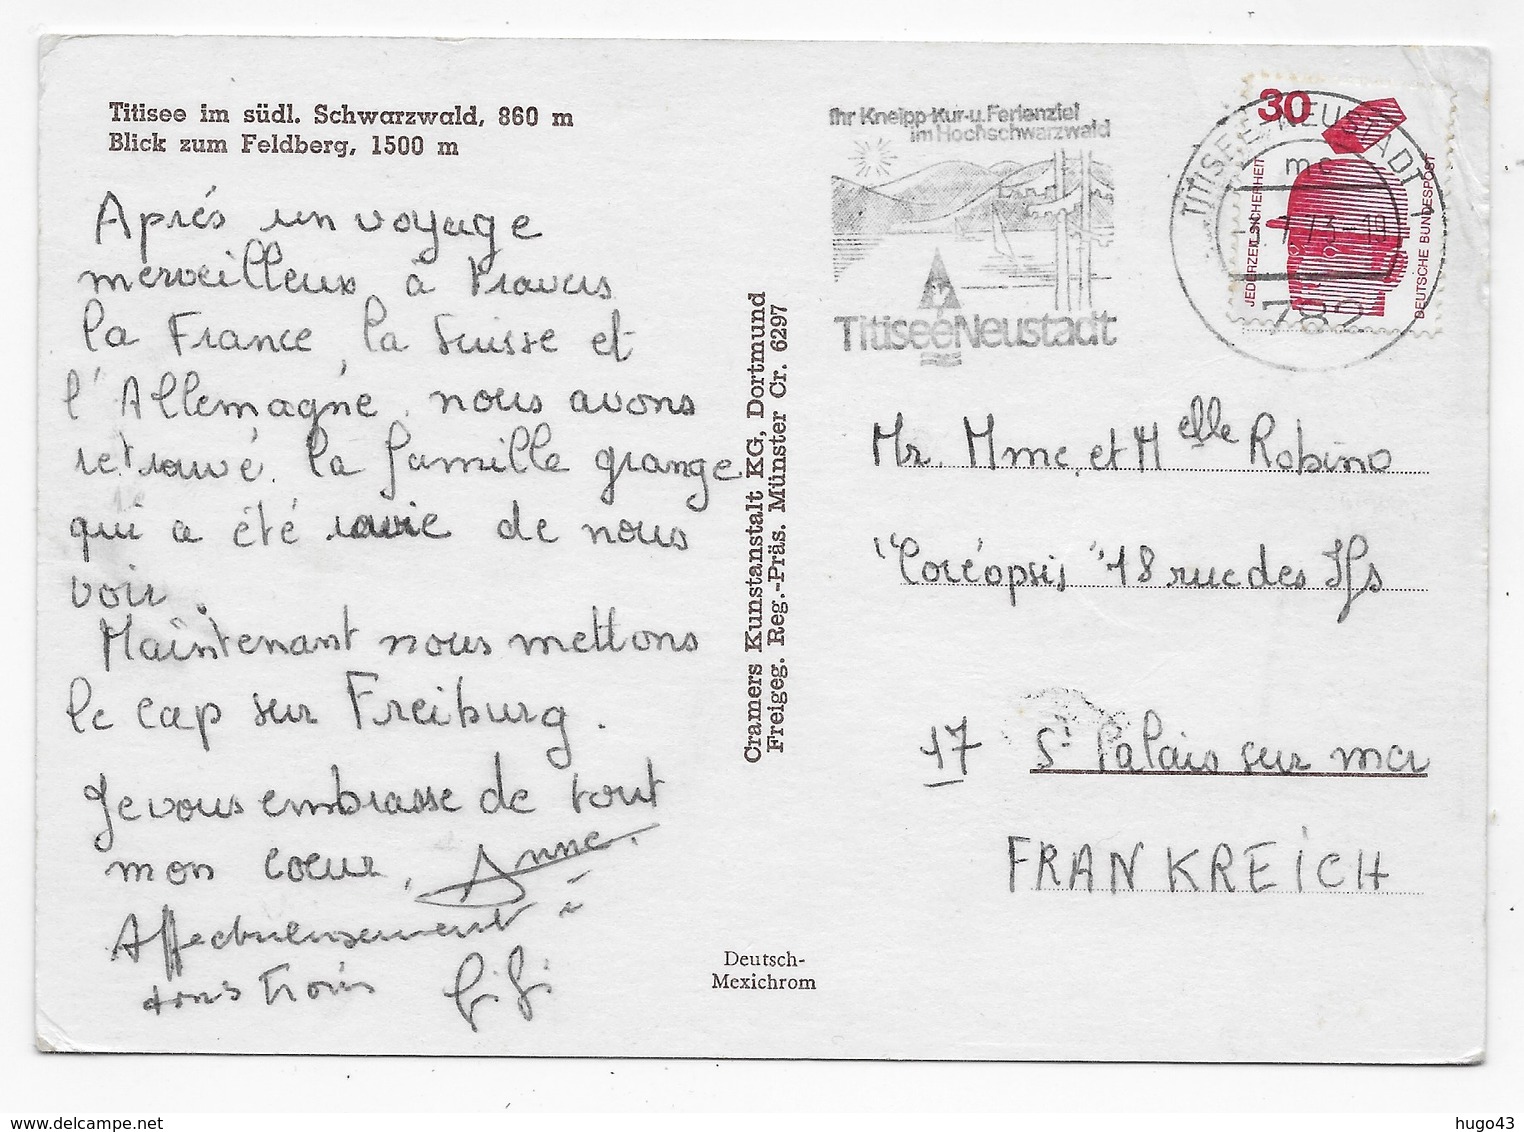 Titisee im südl. Schwarzwald, 860 m
Blick zum Feldberg, 1500 m
Après un voyage
merveilleux à travers
la France, la Suisse et
l'Allemagne, nous avons
retrouvé la famille grange
qui a été ravie de nous
voir.
Maintenant nous mettons
le cap sur Freiburg.
Je vous embrasse de tout
mon coeur, Anne.
Affectueusement
tous trois Gigi
Cramers Kunstanstalt KG, Dortmund
Freigeg. Reg.-Präs. Münster Cr. 6297
Deutsch-
Mexichrom
Ihr Kneipp-Kur-u. Ferienziel
im Hochschwarzwald
Titisee-Neustadt
TITISEE-NEUSTADT 1
mc
7.73-19
782
30
JEDERZEIT SICHERHEIT
DEUTSCHE BUNDESPOST
Mr. Mme. et Melle Robino
"Coréopsis" 18 rue des Ifs
17 St Palais sur mer
FRANKREICH
hugo43
www.delcampe.net